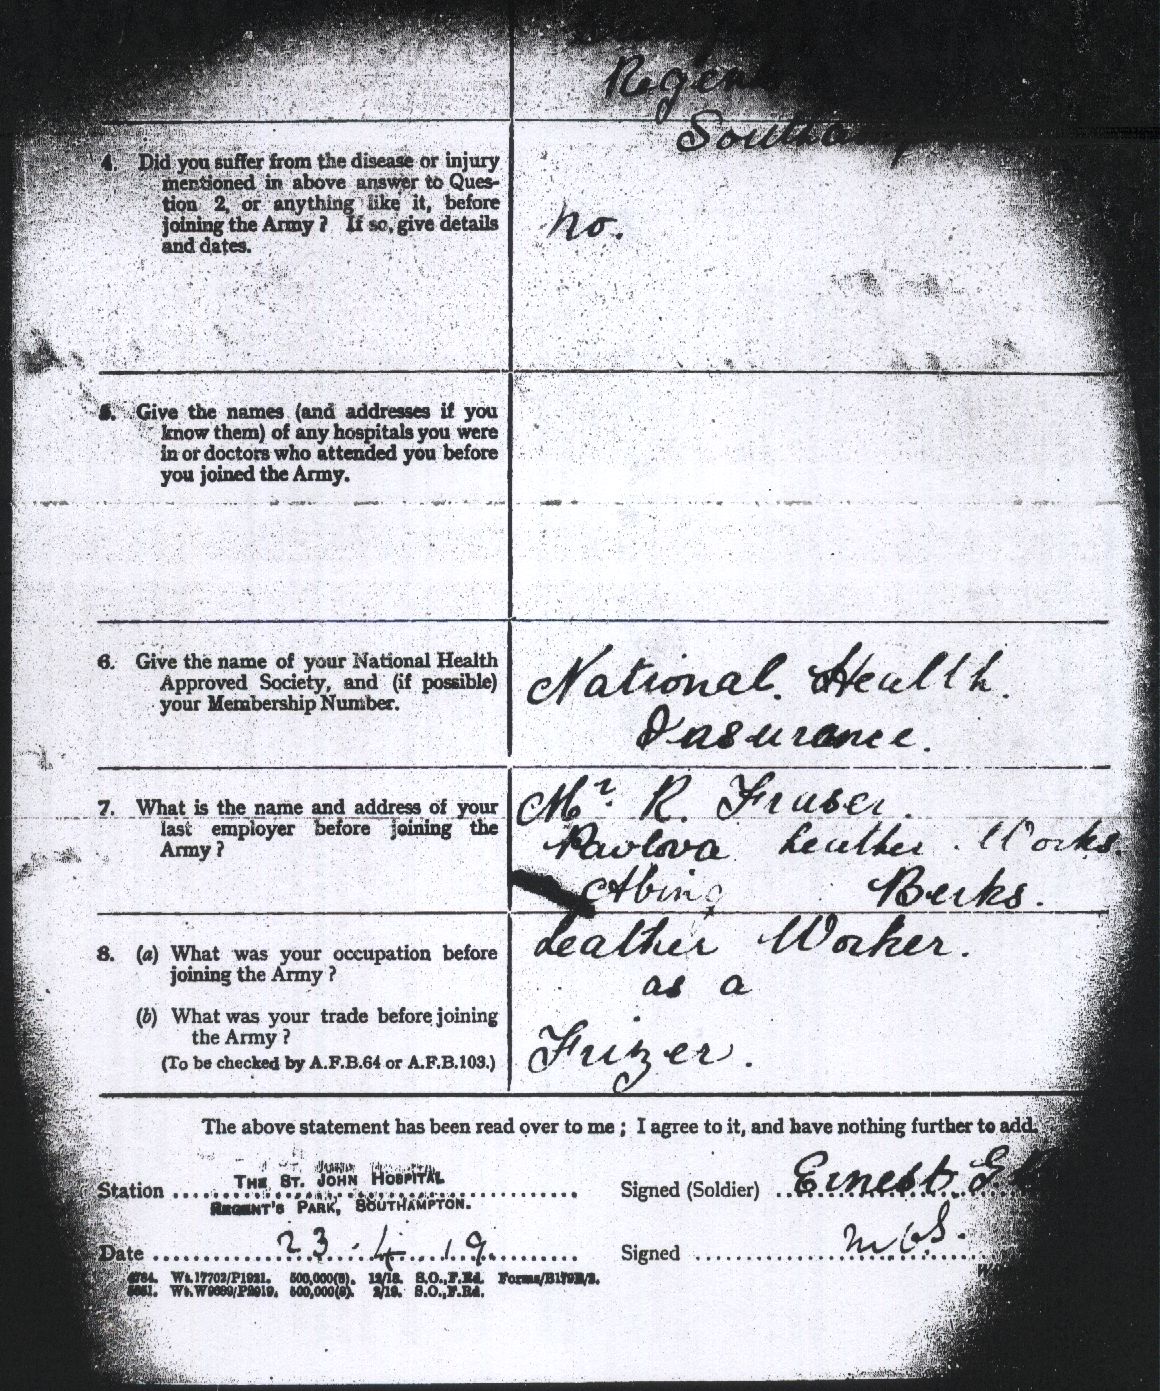 Regent
Southamp
4. Did you suffer from the disease or injury
mentioned in above answer to Ques-
tion 2, or anything like it, before
joining the Army? If so, give details
and dates.
No.
5. Give the names (and addresses if you
know them) of any hospitals you were
in or doctors who attended you before
you joined the Army.
6. Give the name of your National Health
Approved Society, and (if possible)
your Membership Number.
National Health.
Insurance.
7. What is the name and address of your
last employer before joining the
Army?
Mr. R. Fraser.
Pavlova Leather Works.
Abing Berks.
8. (a) What was your occupation before
joining the Army?
Leather Worker.
as a
(b) What was your trade before joining
the Army?
(To be checked by A.F.B.64 or A.F.B.103.)
Frizer.
The above statement has been read over to me; I agree to it, and have nothing further to add.
Station THE ST. JOHN HOSPITAL
REGENT'S PARK, SOUTHAMPTON.
Signed (Soldier) Ernest
Date 23.4.19.
Signed
Wt.17702/P1921. 500,000(9). 12/18. S.O.,F.Rd. Forms/B179B/2.
500,000(9). 2/19. S.O.,F.Rd.